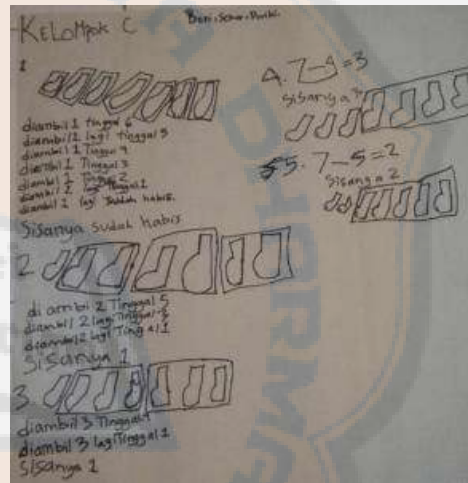 KELOMPOK C
1
diambil 1 tinggal 6
diambil 1 lagi Tinggal 5
diambil 1 Tinggal 4
diambil 1 Tinggal 3
diambil 1 Tinggal 2
diambil 1 lagi Tinggal 1
diambil 1 lagi Sudah habis
Sisanya sudah habis
2
di ambil 2 Tinggal 5
diambil 2 lagi Tinggal 3
diambil 2 lagi Tinggal 1
Sisanya 1
3.
diambil 3 Tinggal 4
diambil 3 lagi Tinggal 1
Sisanya 1
4. 7-4=3
Sisanya 3
5. 7-5=2
Sisanya 2
DHARMA